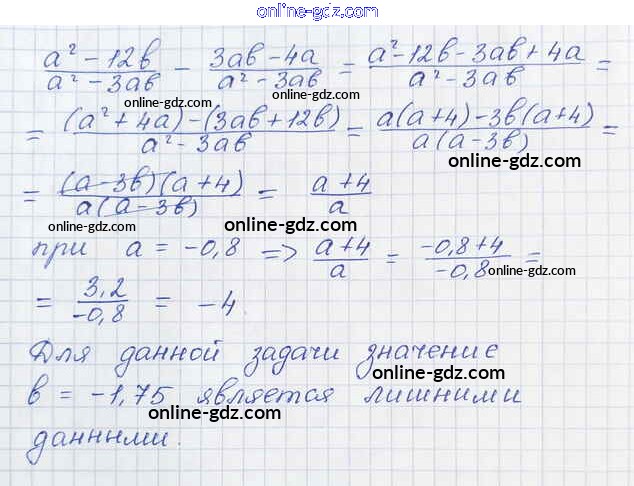 online-gdz.com
a² - 12b / a² - 3ab - 3ab - 4a / a² - 3ab = a² - 12b - 3ab + 4a / a² - 3ab =
online-gdz.com
online-gdz.com
= (a² + 4a) - (3ab + 12b) / a² - 3ab = a(a + 4) - 3b(a + 4) / a(a - 3b) =
online-gdz.com
= (a - 3b)(a + 4) / a(a - 3b) = a + 4 / a
online-gdz.com
online-gdz.com
при a = -0,8 => a + 4 / a = -0,8 + 4 / -0,8 =
online-gdz.com
= 3,2 / -0,8 = -4
online-gdz.com
Для данной задачи значение
b = -1,75 является лишними
online-gdz.com
данными.